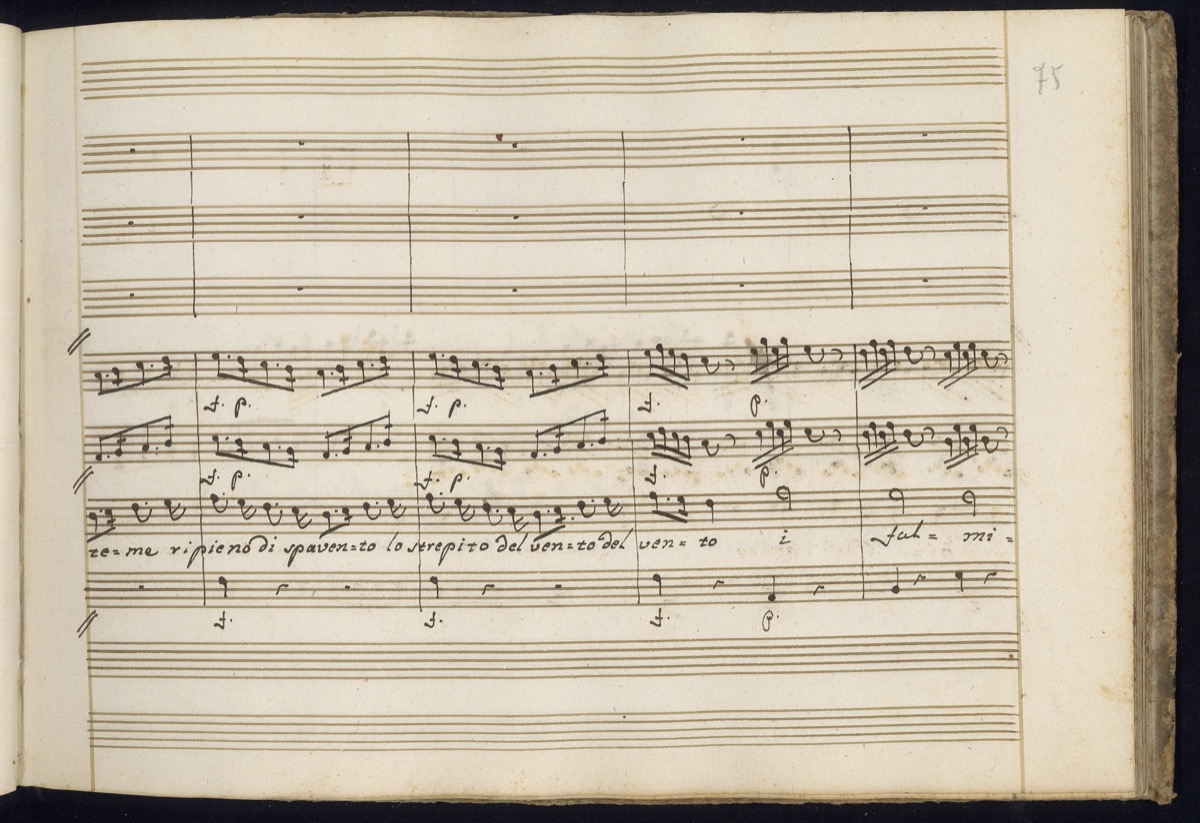 75
f. p. f. p. f. p.
f. p. f. p. f. p.
te=me ripieno di spaven=to lo strepito del ven=to del ven=to i ful=mi=
f. f. f. p.